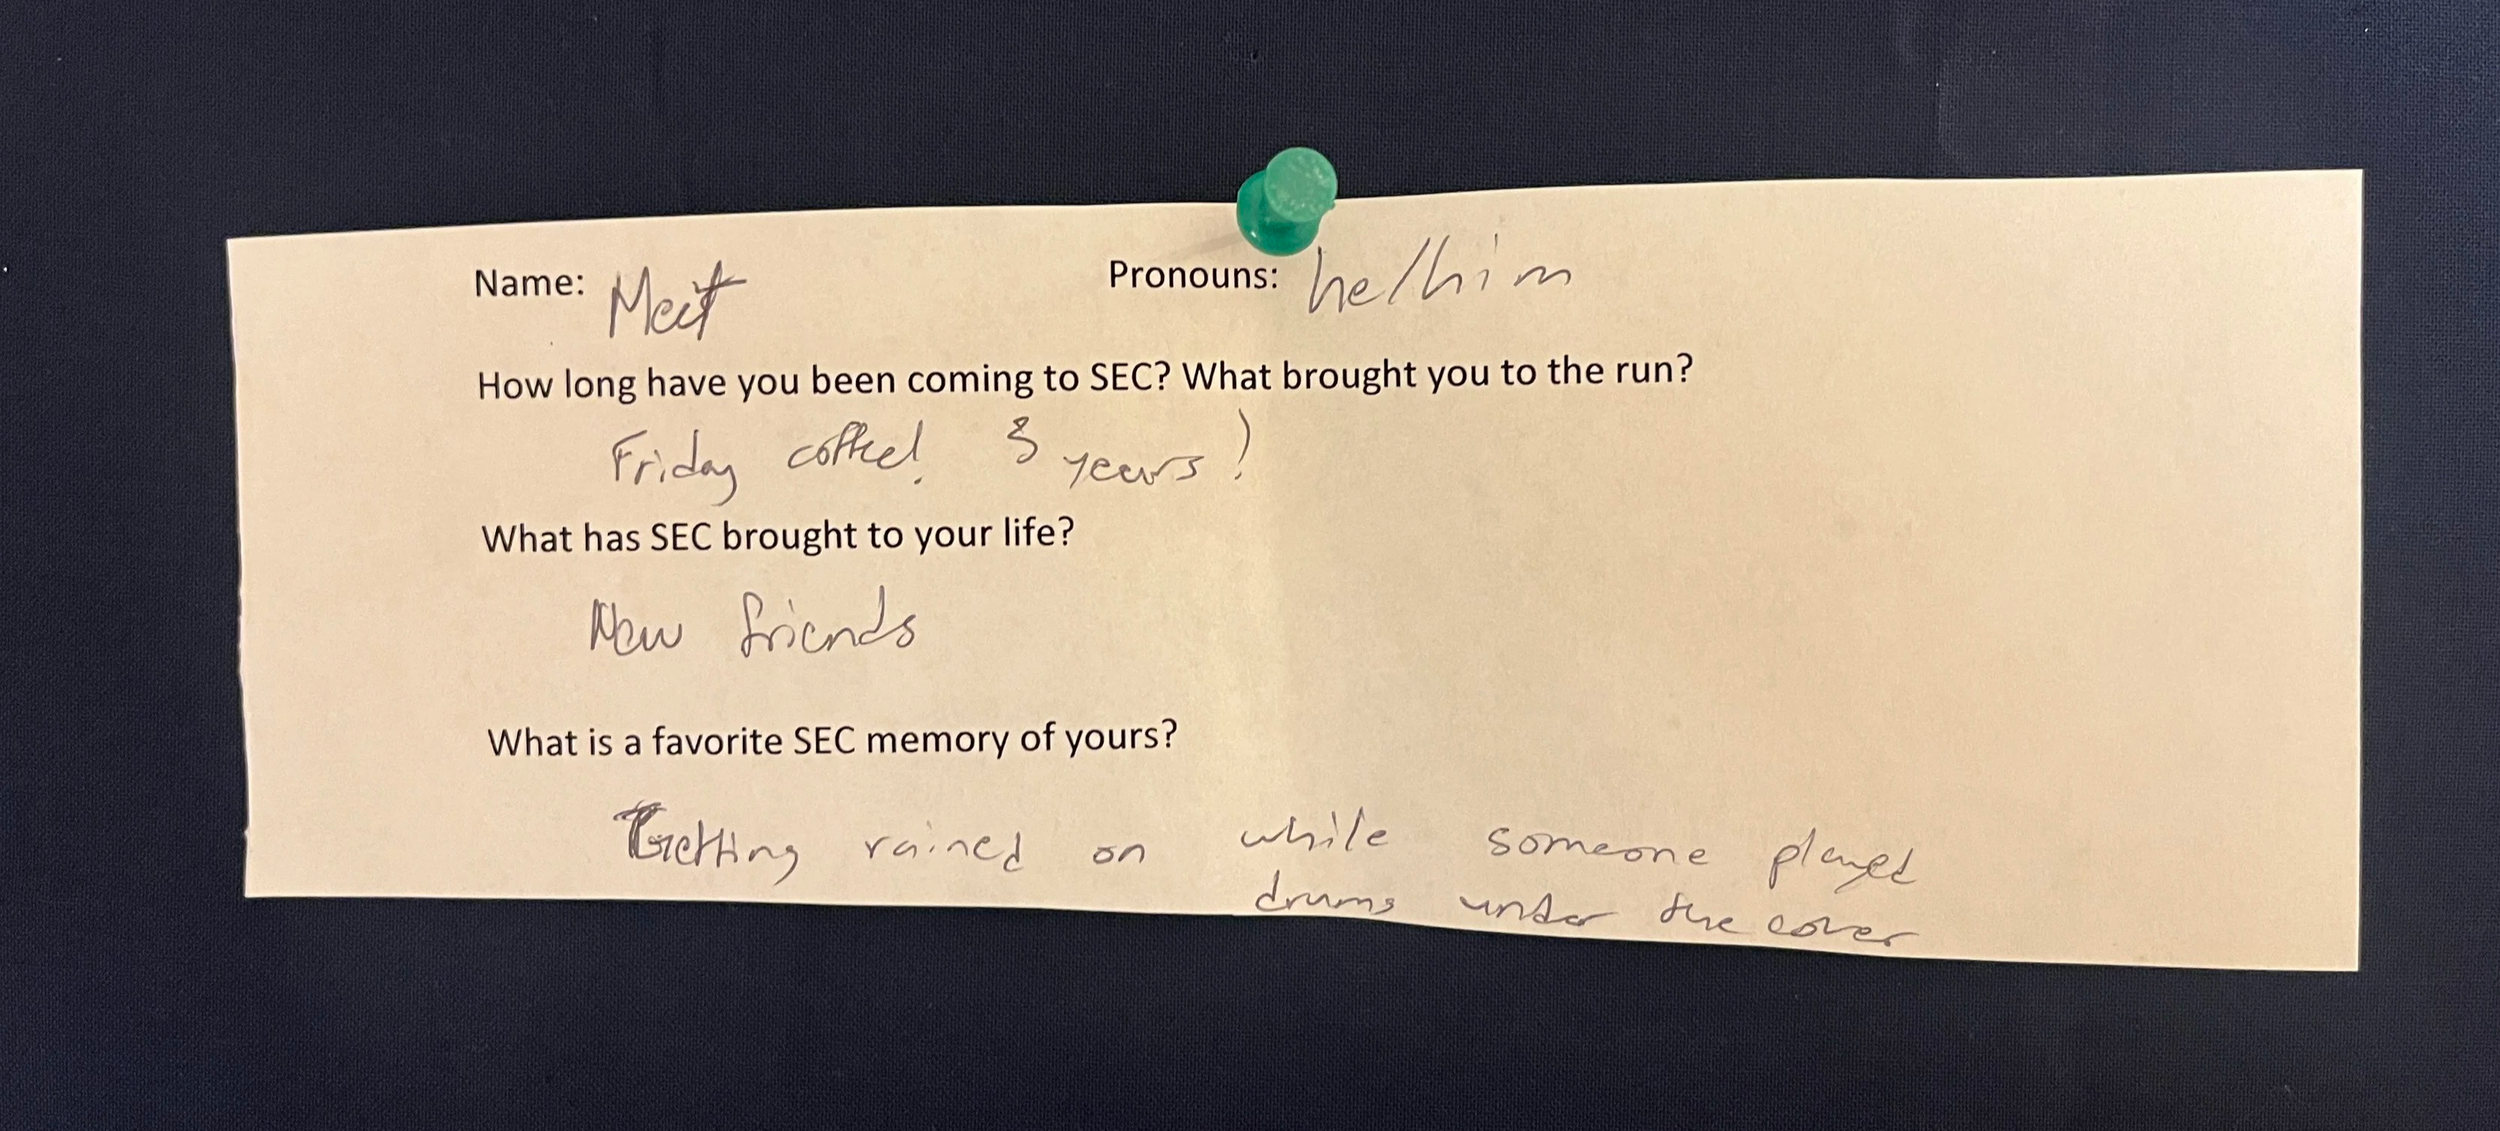 Name: Matt Pronouns: he/him
How long have you been coming to SEC? What brought you to the run?
Friday coffee! years!
What has SEC brought to your life?
New friends
What is a favorite SEC memory of yours?
Getting rained on while someone played
drums under the cover